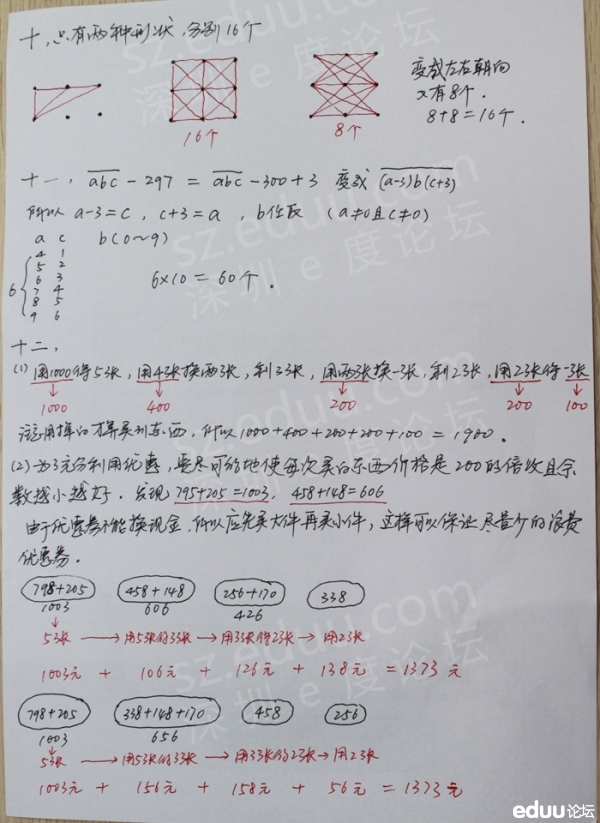 十，只有两种形状，分别16个
变成左右朝向
又有8个．
8+8=16个．
16个
8个
十一，abc-297 = abc-300+3 变成 (a-3)b(c+3)
所以 a-3=c，c+3=a，b任取 (a≠0且c≠0)
a c b(0～9)
4 1
5 2
6 3
7 4
8 5
9 6
6
6×10=60个．
十二，
(1) 用1000得5张，用4张换两张，剩3张，用两张换一张，剩2张，用2张得一张
1000 400 200 200 100
注意用掉的才算买到东西，所以1000+400+200+200+100=1900．
(2) 为了充分利用优惠，要尽可能地使每次买的东西价格是200的倍数且余
数越小越好．发现 795+205=1003，458+148=606
由于优惠券不能换现金，所以应先买大件再买小件，这样可以保证尽量少的浪费
优惠券．
798+205 458+148 256+170 338
1003 606 426
5张 → 用5张得3张 → 用3张得2张 → 用2张
1003元 + 106元 + 126元 + 138元 = 1373元
798+205 338+148+170 458 256
1003 656
5张 → 用5张得3张 → 用3张得2张 → 用2张
1003元 + 156元 + 158元 + 56元 = 1373元
sz.eduu.com
深圳e度论坛
sz.eduu.com
深圳e度论坛
sz.eduu.com
深圳e度论坛
eduu论坛